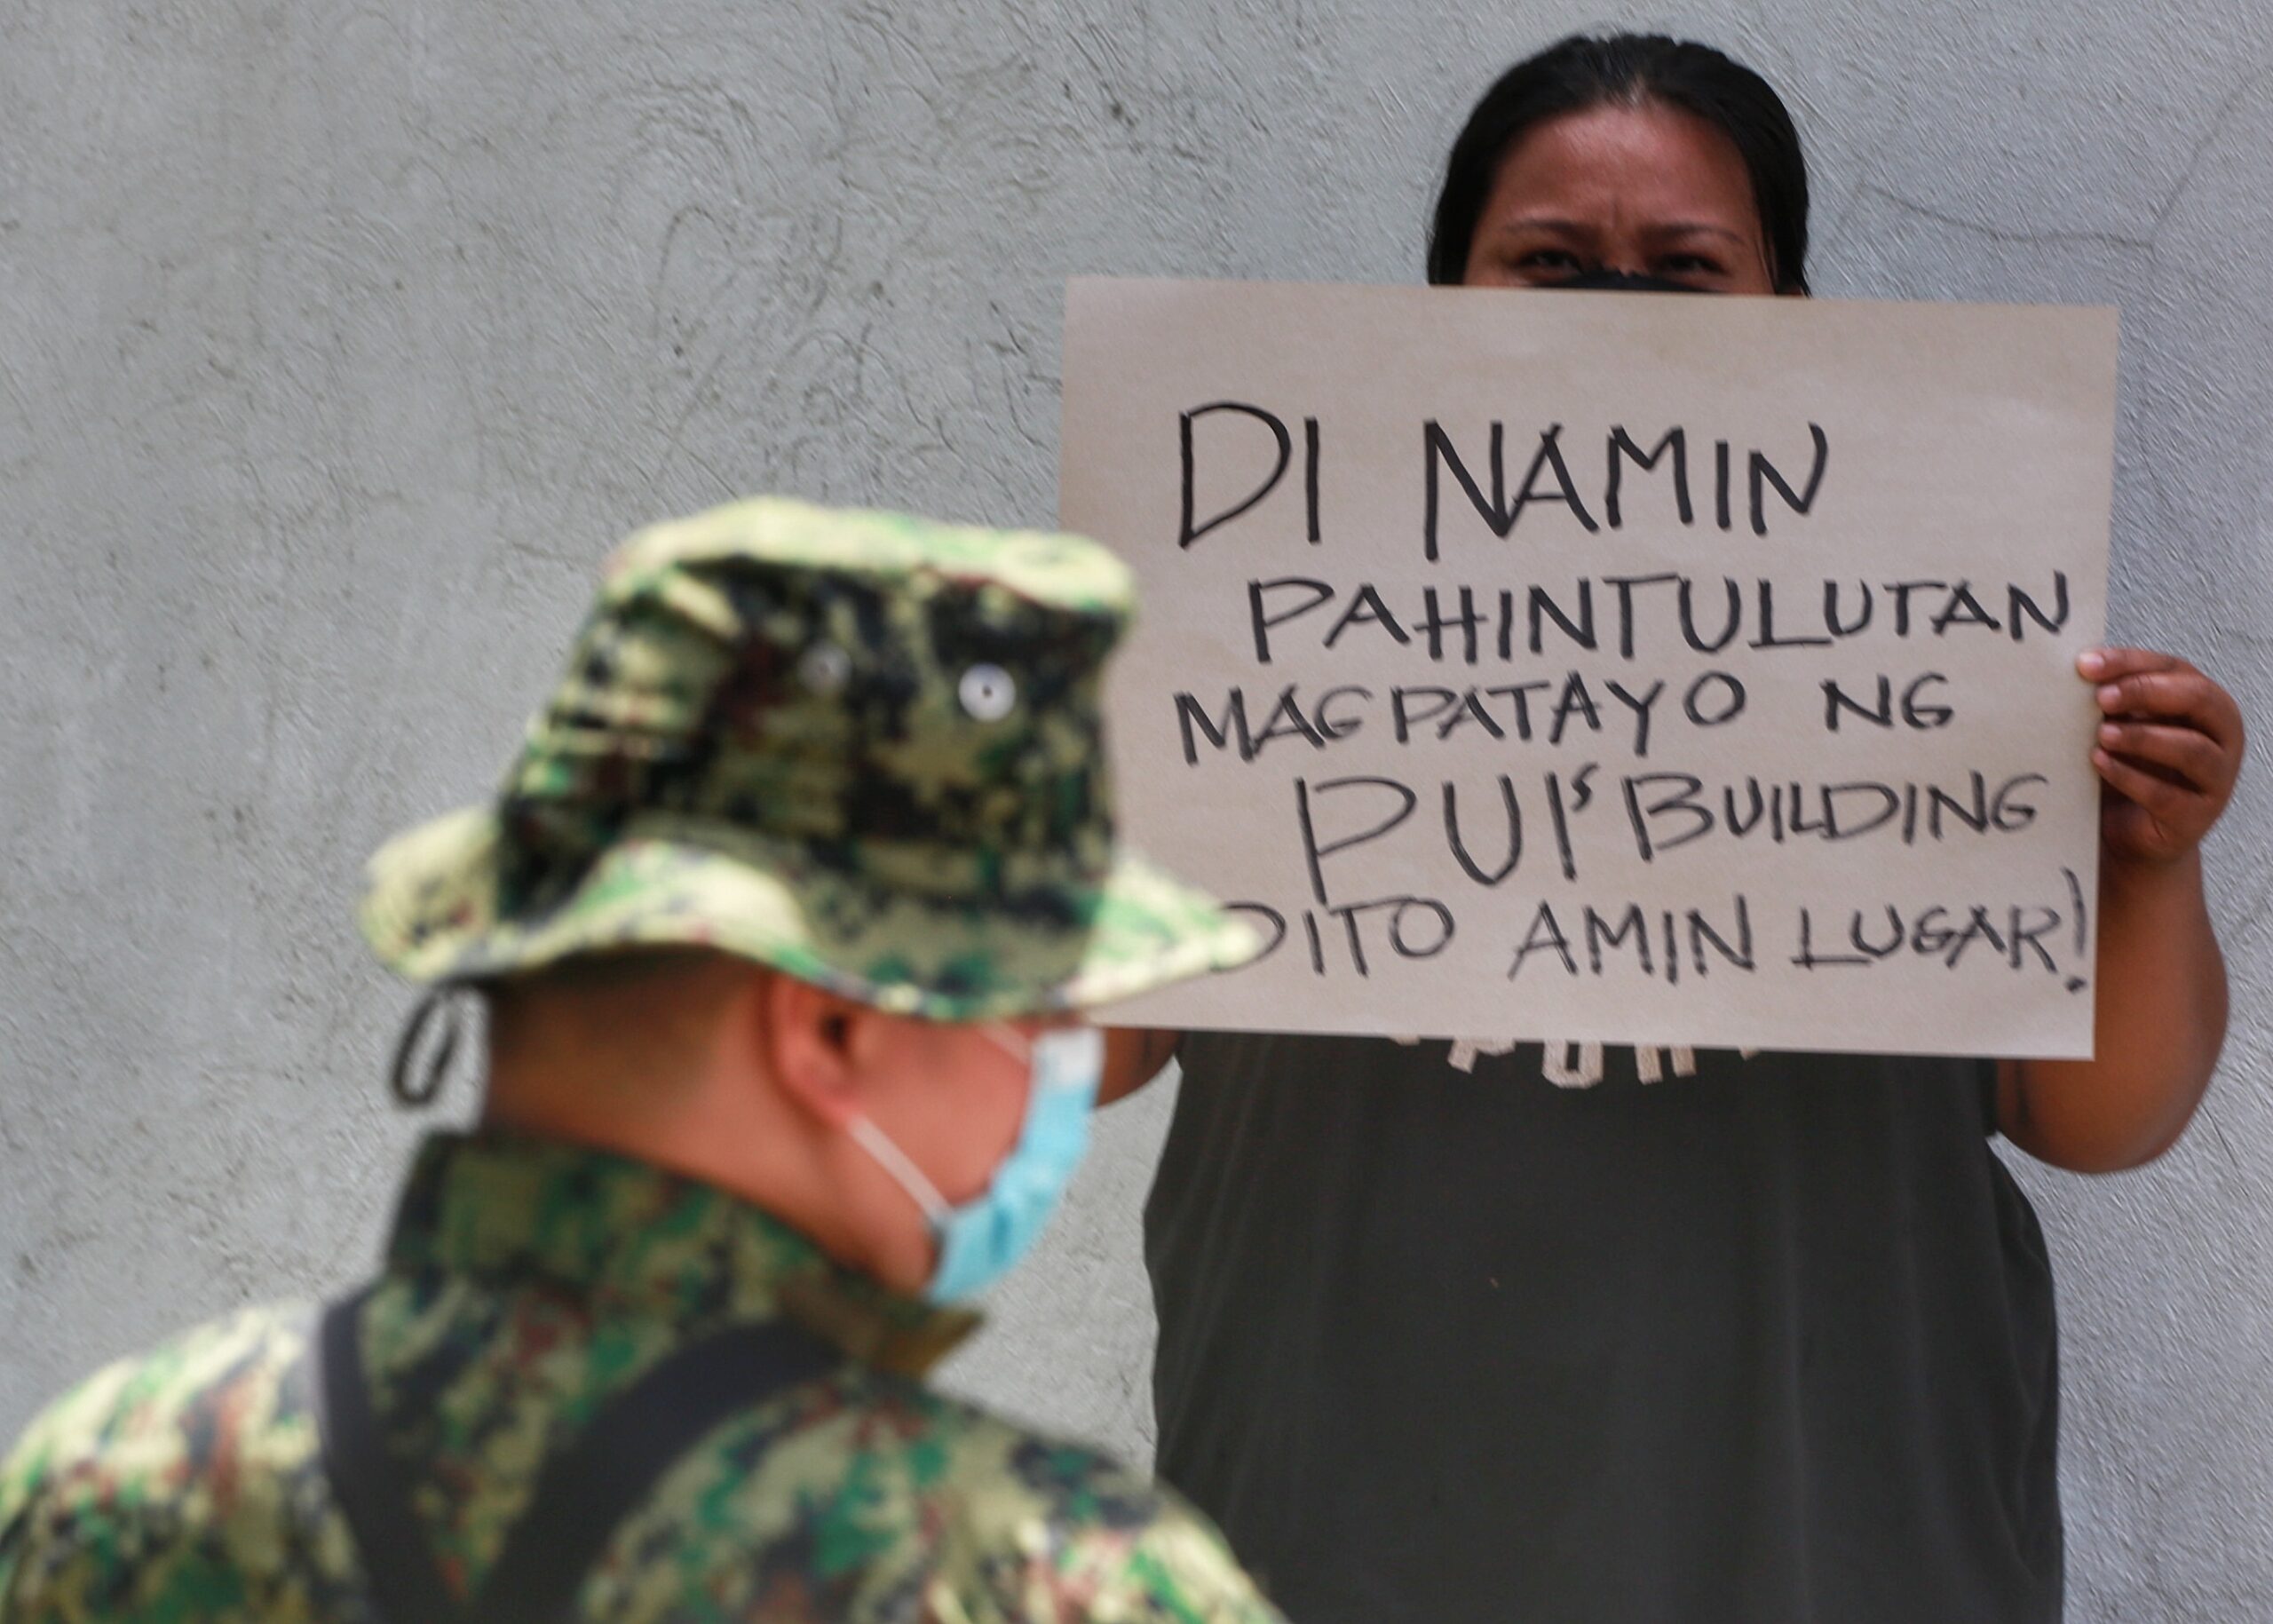 DI NAMIN
PAHINTULUTAN
MAGPATAYO NG
PUI's BUILDING
DITO AMIN LUGAR!